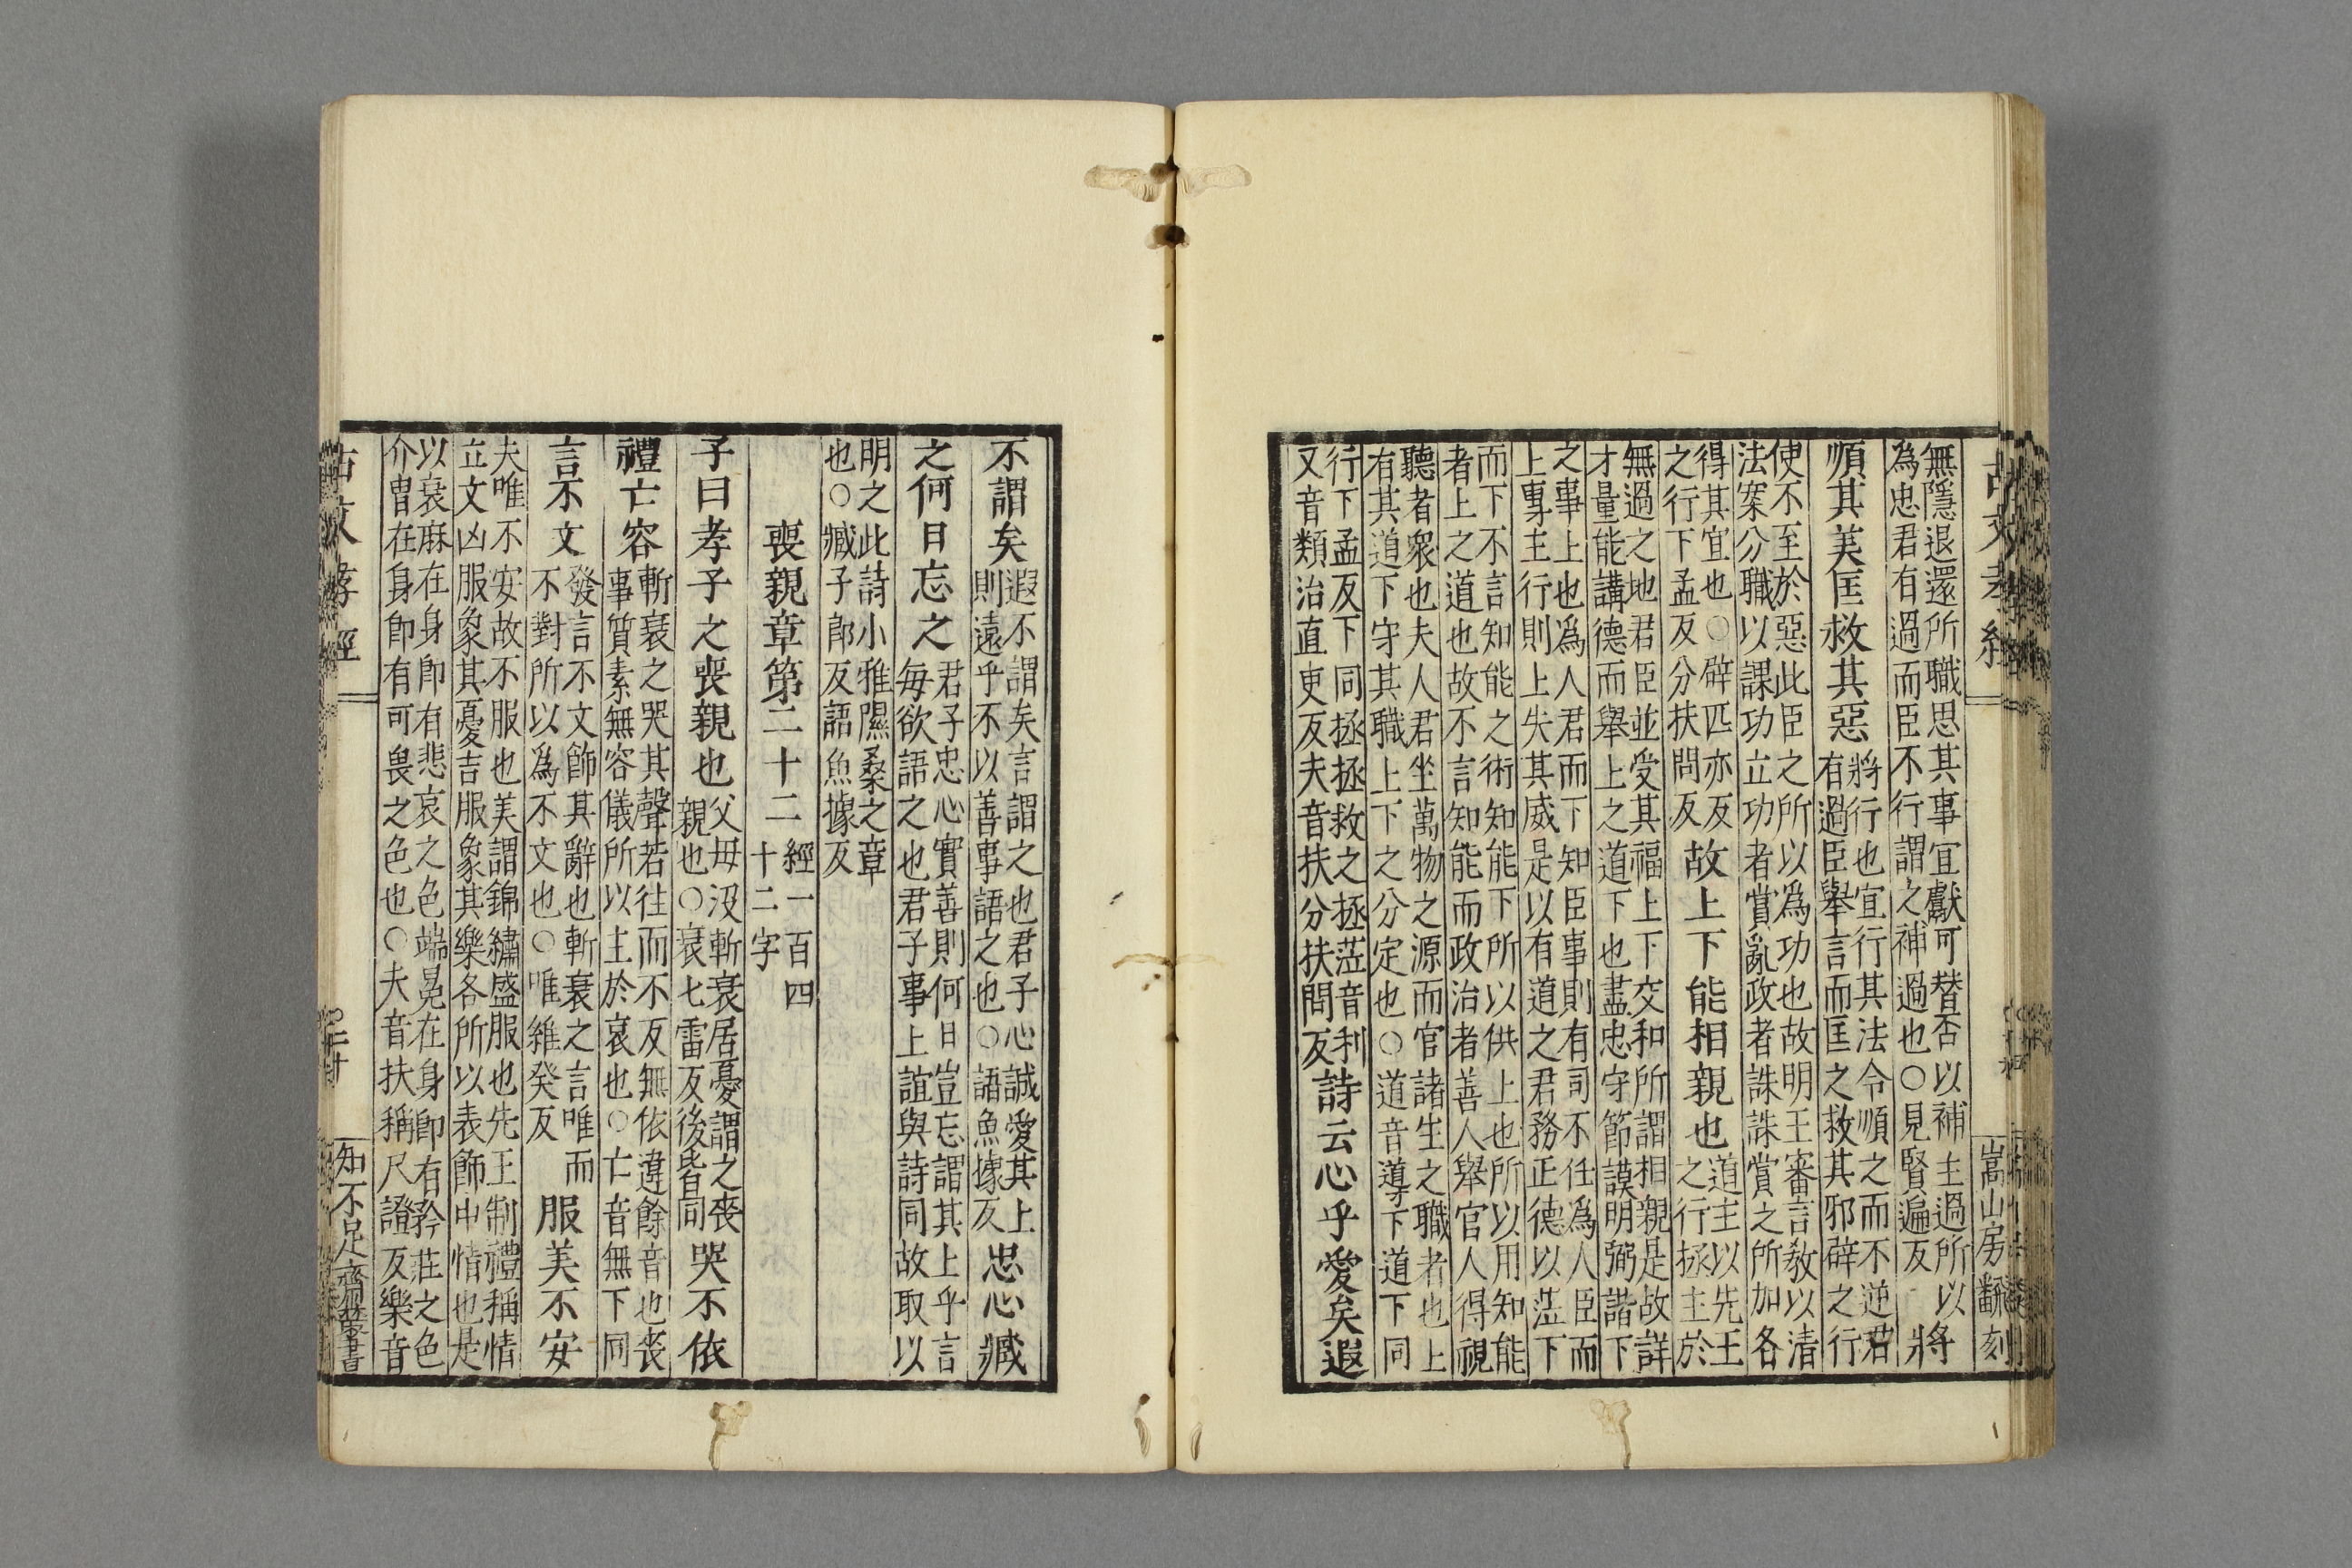 古文孝經
嵩山房翻刻
無隱退還所職思其事宜獻可替否以補主過所以
為忠君有過而臣不行謂之補過也○見賢遍反
將
順其美匡救其惡
將行也宜行其法令順之而不逆君
有過臣舉言而匡之救其邪辟之行
使不至於惡此臣之所以爲功也故明王審言教以清
法案分職以課功立功者賞亂政者誅誅賞之所加各
得其宜也○辟匹亦反
之行下孟反分扶問反
故上下能相親也
道主以先王
之行拯主於
無過之地君臣並受其福上下交和所謂相親是故詳
才量能講德而舉上之道下也盡忠守節謨明弼諧下
之事上也爲人君而下知臣事則有司不任爲人臣而
上專主行則上失其威是以有道之君務正德以蒞下
而下不言知能之術知能下所以供上也所以用知能
者上之道也故不言知能而政治者善人舉官人得視
聽者衆也夫人君坐萬物之源而官諸生之職者也上
有其道下守其職上下之分定也○道音導下道下同
行下孟反下同拯拯救之拯蒞音利
又音類治直吏反夫音扶分扶問反
詩云心乎愛矣遐
不謂矣
遐不謂矣言謂之也君子心誠愛其上
則遠乎不以善事語之也○語魚據反
忠心臧
之何日忘之
君子忠心實善則何日豈忘謂其上乎言
每欲語之也君子事上誼與詩同故取以
明之此詩小雅隰桑之章
也○臧子郎反語魚據反
喪親章第二十二
經一百四
十二字
子曰孝子之喪親也
父母沒斬衰居憂謂之喪
親也○衰七雷反後皆同
哭不依
禮亡容
斬衰之哭其聲若往而不反無依違餘音也喪
事質素無容儀所以主於哀也○亡音無下同
言不文
發言不文飾其辭也斬衰之言唯而
不對所以爲不文也○唯維癸反
服美不安
夫唯不安故不服也美謂錦繡盛服也先王制禮稱情
立文凶服象其憂吉服象其樂各所以表飾中情也是
以衰麻在身卽有悲哀之色端冕在身卽有矜莊之色
介冑在身卽有可畏之色也○夫音扶稱尺證反樂音
古文孝經
二十
知不足齋叢書